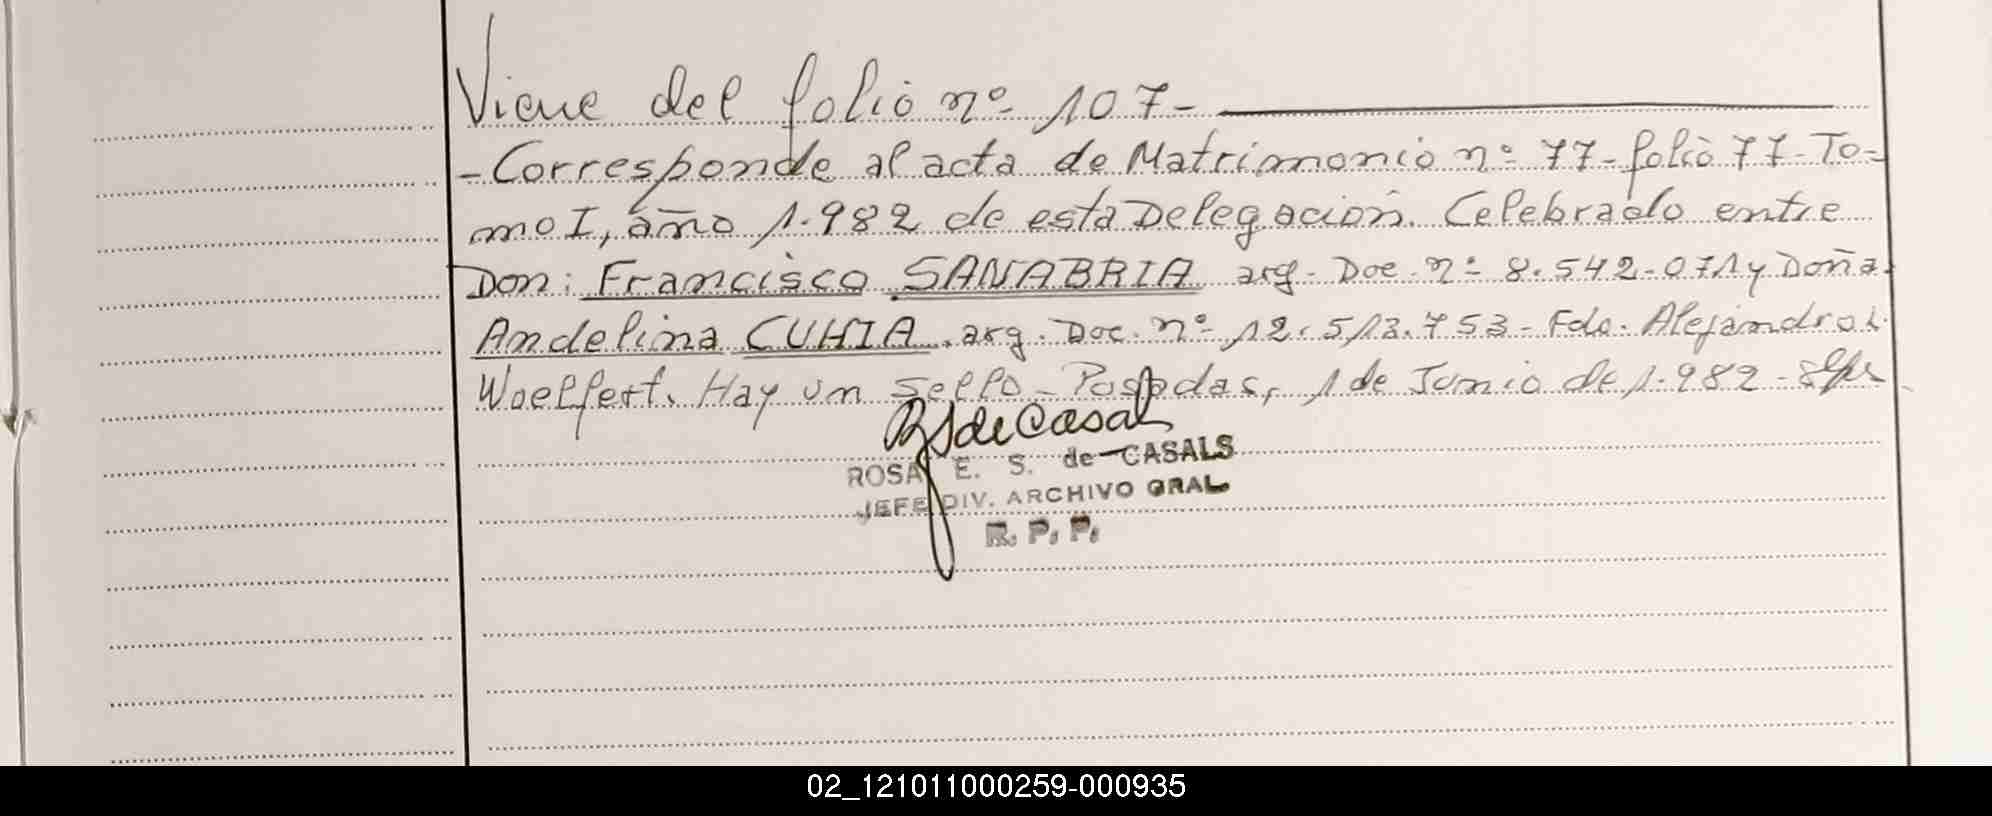 Viene del folio nº 107-
-Corresponde al acta de Matrimonio nº 77-folio 77-To-
mo I, año 1.982 de esta Delegación. Celebrado entre
Don: Francisco SANABRIA arg. Doc. nº 8.542.071 y Doña
Andelina CUHIA. arg. Doc. nº 12.513.753- Fdo. Alejandro
Woelfert. Hay un sello- Posadas, 1 de Junio de 1.982-
RSdeCasals
ROSA E. S. de CASALS
JEFE DIV. ARCHIVO GRAL
R. P. P.
02_121011000259-000935